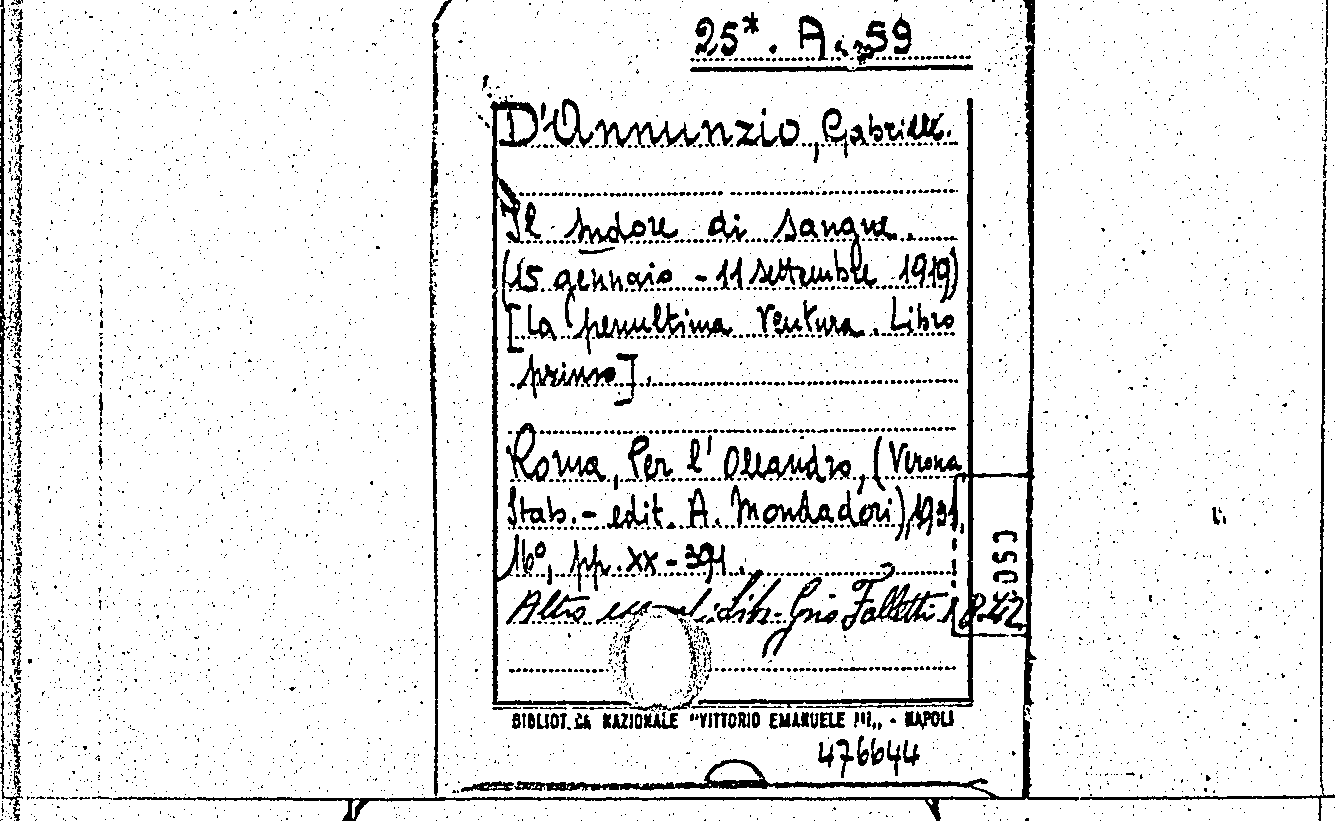 25*. A. 59
D'Annunzio, Gabriele.
Il sudore di sangue.
(15 gennaio - 11 settembre 1919)
[La penultima ventura. Libro
primo].
Roma, Per l' Oleandro, (Verona,
Stab. - edit. A. Mondadori), 1931,
16°, pp. XX - 391.
Altro Falletti 842
CS0
BIBLIOT CA NAZIONALE "VITTORIO EMANUELE III„ - NAPOLI
476644